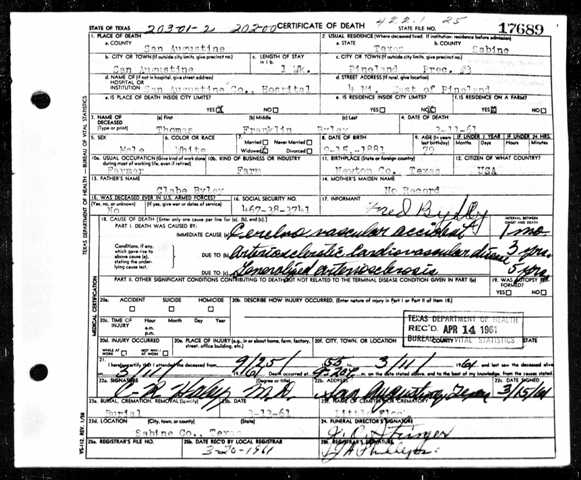 STATE OF TEXAS 20301-2 20200 CERTIFICATE OF DEATH 422.1 25 STATE FILE NO. 17689
1. PLACE OF DEATH 2. USUAL RESIDENCE (Where deceased lived. If institution: residence before admission)
a. COUNTY San Augustine a. STATE Texas b. COUNTY Sabine
b. CITY OR TOWN (If outside city limits, give precinct no.) c. LENGTH OF STAY c. CITY OR TOWN (If outside city limits, give precinct no.)
San Augustine 1 Wk. Pineland Prec. #3
d. NAME OF (If not in hospital, give street address) HOSPITAL OR INSTITUTION d. STREET ADDRESS (If rural, give location)
San Augustine Co., Hospital 4 Mi. East of Pineland
e. IS PLACE OF DEATH INSIDE CITY LIMITS? e. IS RESIDENCE INSIDE CITY LIMITS? f. IS RESIDENCE ON A FARM?
YES NO YES NO YES NO
3. NAME OF DECEASED (Type or print) (a) First (b) Middle (c) Last 4. DATE OF DEATH
Thomas Franklin Byley 3-11-61
5. SEX 6. COLOR OR RACE 7. Married Never Married Widowed Divorced 8. DATE OF BIRTH 9. AGE IF UNDER 1 YEAR IF UNDER 24 HRS.
Male White 79
10a. USUAL OCCUPATION (Give kind of work done 10b. KIND OF BUSINESS OR INDUSTRY 11. BIRTHPLACE (State or foreign country) 12. CITIZEN OF WHAT COUNTRY?
Farmer Farm Newton Co., Texas USA
13. FATHER'S NAME 14. MOTHER'S MAIDEN NAME
Byley No Record
15. WAS DECEASED EVER IN U.S. ARMED FORCES? 16. SOCIAL SECURITY NO. 17. INFORMANT
(Yes, no, or unknown) (If yes, give war or dates of service)
No 467-38-3741 Fred Byley
18. CAUSE OF DEATH [Enter only one cause per line for (a), (b), and (c).] INTERVAL BETWEEN ONSET AND DEATH
PART I. DEATH WAS CAUSED BY:
IMMEDIATE CAUSE (a) Cerebro vascular accident 1 mo
Conditions, if any, which gave rise to above cause (a), stating the underlying cause last.
DUE TO (b) Arteriosclerotic Cardiovascular disease 3 yrs.
DUE TO (c) Generalized arteriosclerosis 5 yrs
PART II. OTHER SIGNIFICANT CONDITIONS CONTRIBUTING TO DEATH BUT NOT RELATED TO THE TERMINAL DISEASE CONDITION GIVEN IN PART I(a) 19. WAS AUTOPSY PERFORMED?
YES NO
20a. ACCIDENT SUICIDE HOMICIDE 20b. DESCRIBE HOW INJURY OCCURRED. (Enter nature of injury in Part I or Part II of item 18.)
20c. TIME OF INJURY Hour Month Day Year
a.m.
p.m.
TEXAS DEPARTMENT OF HEALTH
REC'D APR 14 1961
BUREAU OF VITAL STATISTICS
20d. INJURY OCCURRED 20e. PLACE OF INJURY (e.g., in or about home, farm, factory, street, office building, etc.) 20f. CITY, TOWN, OR LOCATION COUNTY STATE
WHILE AT WORK NOT WHILE AT WORK
21. I hereby certify that I attended the deceased from 9/25/ 55 to 3/11 1961
3/11 1961 Death occurred at on the date stated above; and to the best of my knowledge, from the causes stated.
22a. SIGNATURE (Degree or title) 22b. ADDRESS 22c. DATE SIGNED
M.D. San Augustine, Texas 3/15/61
23a. BURIAL, CREMATION, REMOVAL (Specify) 23b. DATE 23c. NAME OF CEMETERY OR CREMATORY
Burial 3-12-61
23d. LOCATION (City, town, or county) (State) 24. FUNERAL DIRECTOR'S SIGNATURE
Sabine Co., Texas
25a. REGISTRAR'S FILE NO. 25b. DATE REC'D BY LOCAL REGISTRAR 25c. REGISTRAR'S SIGNATURE
3-20-1961
TEXAS DEPARTMENT OF HEALTH—BUREAU OF VITAL STATISTICS
MEDICAL CERTIFICATION
VS-112, REV. 1/58